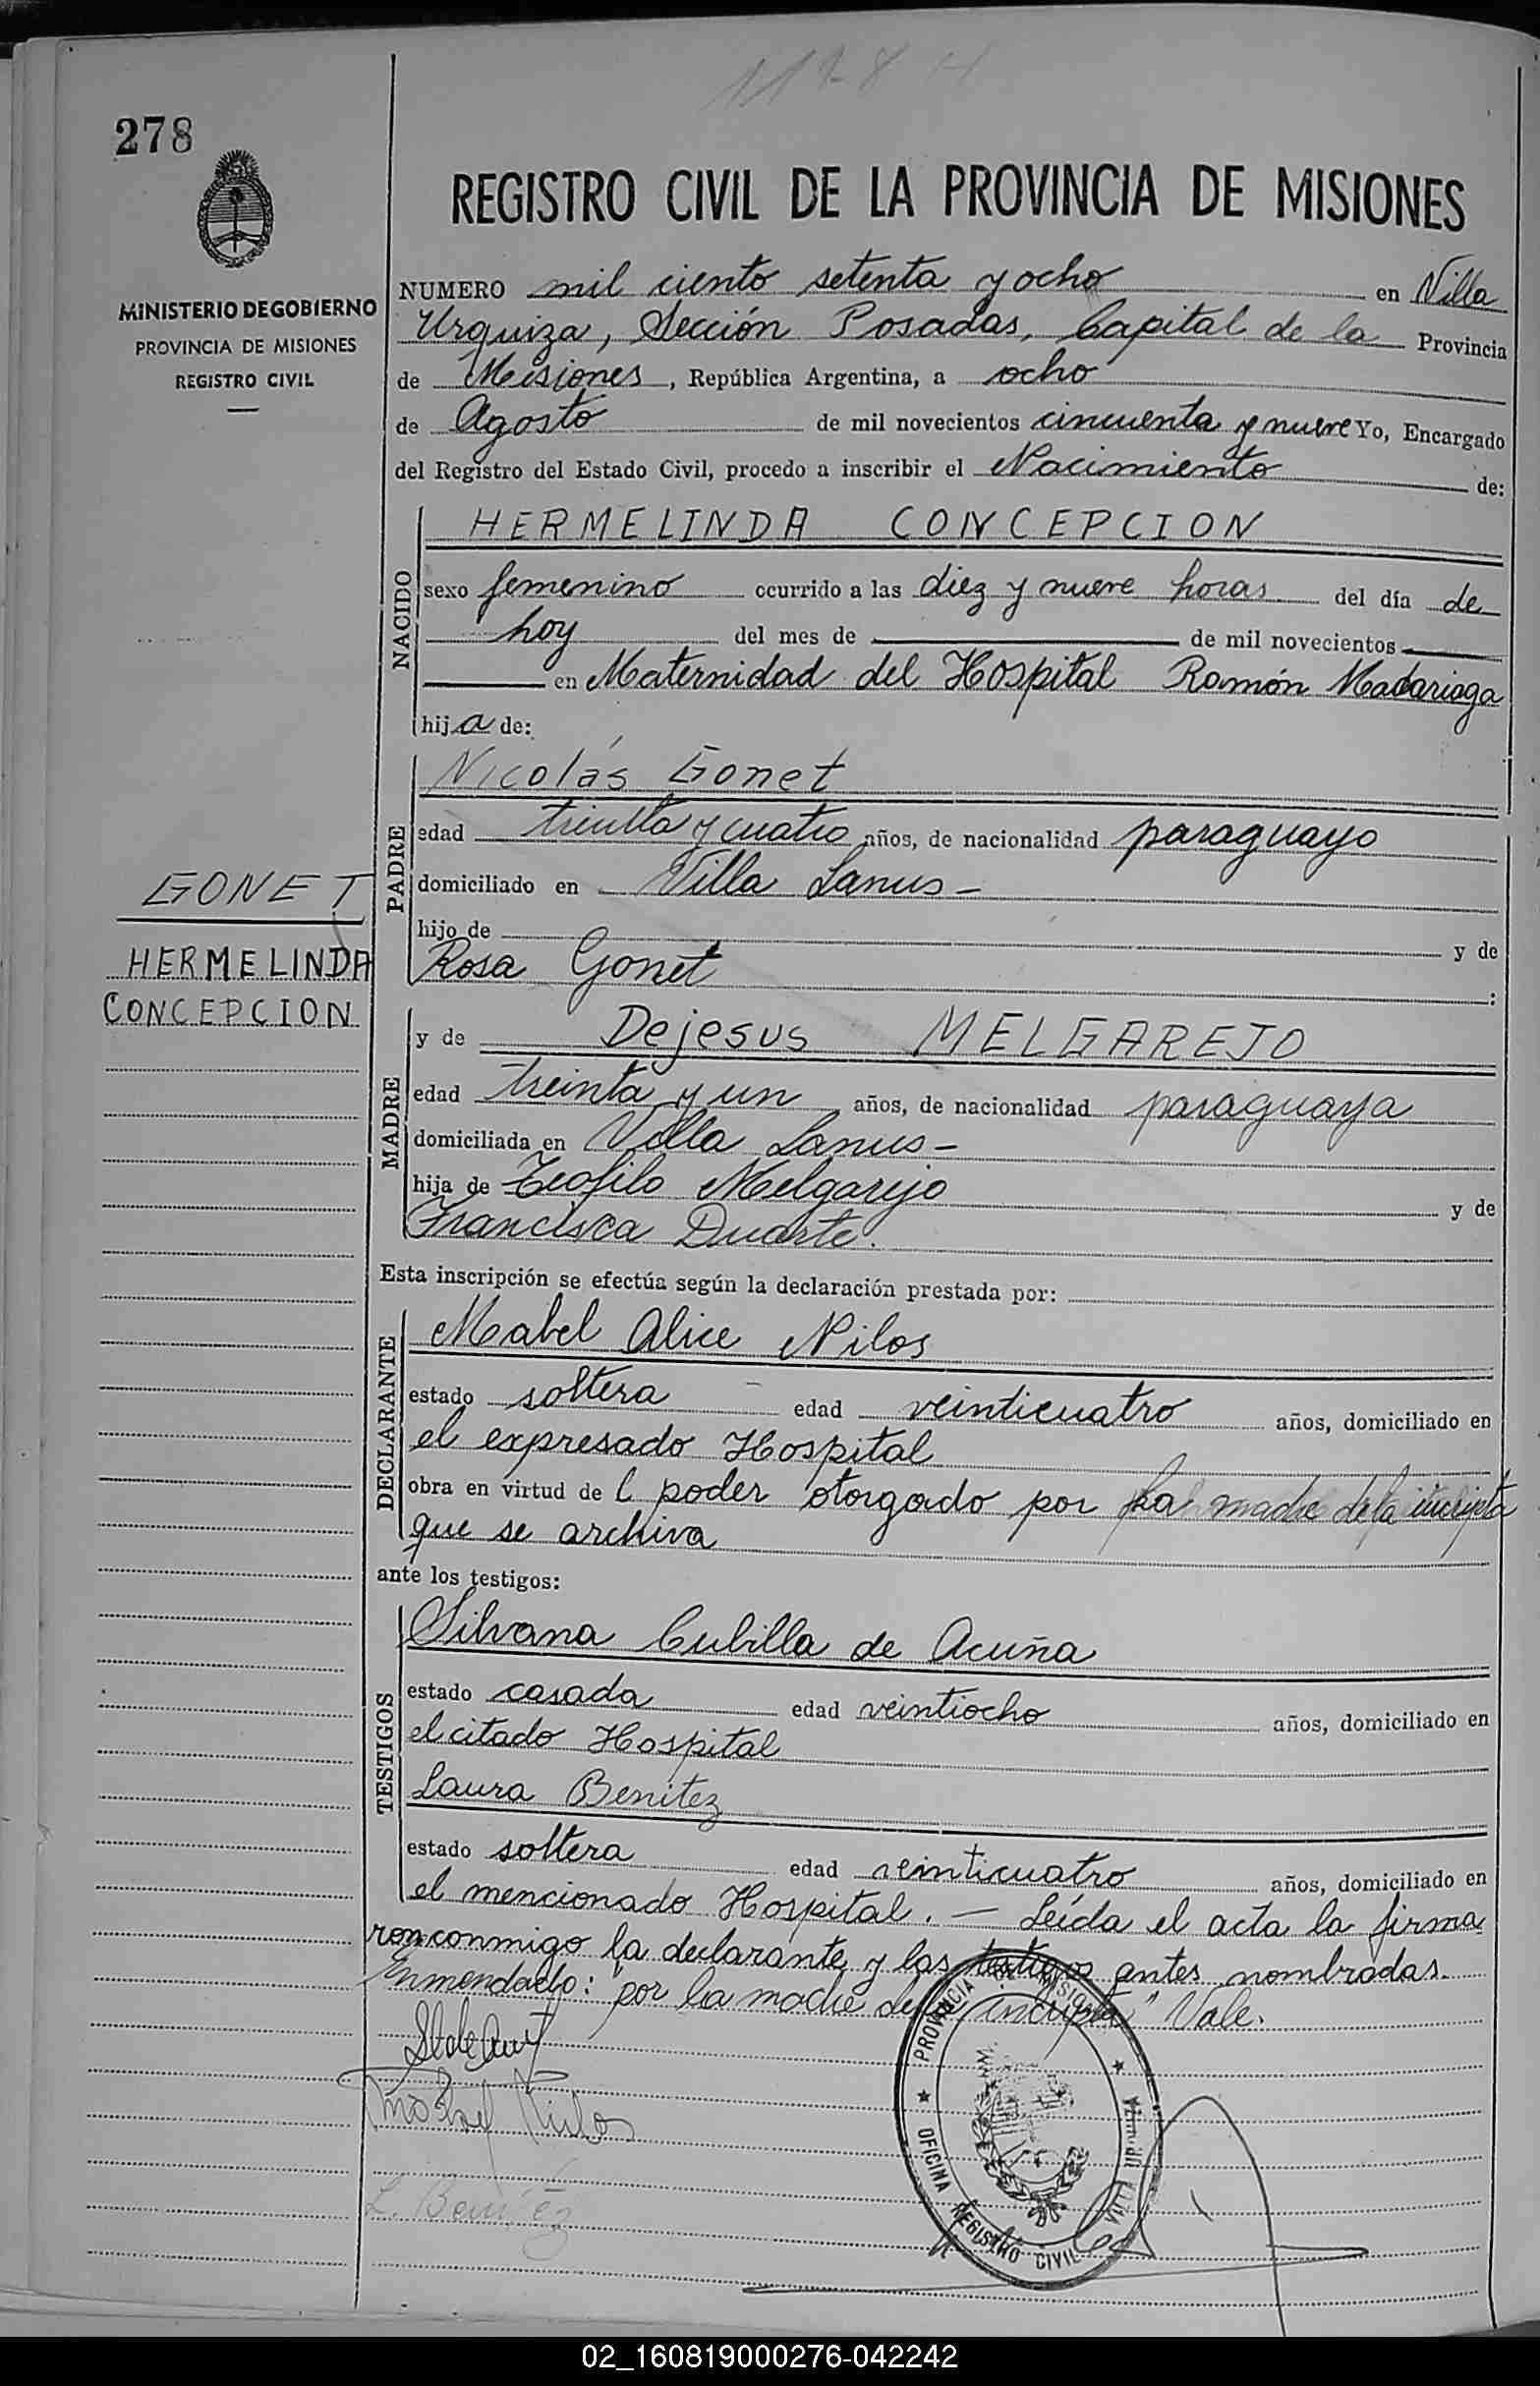 1178 H
278
REGISTRO CIVIL DE LA PROVINCIA DE MISIONES
MINISTERIO DE GOBIERNO
PROVINCIA DE MISIONES
REGISTRO CIVIL
NUMERO mil ciento setenta y ocho en Villa
Urquiza, Sección Posadas, Capital de la Provincia
de Misiones, República Argentina, a ocho
de Agosto de mil novecientos cincuenta y nueve Yo, Encargado
del Registro del Estado Civil, procedo a inscribir el Nacimiento de:
NACIDO
HERMELINDA CONCEPCION
sexo femenino ocurrido a las diez y nueve horas del día de
hoy del mes de de mil novecientos
en Maternidad del Hospital Ramón Madariaga
hija de:
PADRE
Nicolás Gonet
edad treinta y cuatro años, de nacionalidad paraguayo
domiciliado en Villa Lanus -
hijo de y de
Rosa Gonet :
GONET
HERMELINDA
CONCEPCION
MADRE
y de Dejesus MELGAREJO
edad treinta y un años, de nacionalidad paraguaya
domiciliada en Villa Lanus -
hija de Teofilo Melgarejo y de
Francisca Duarte.
Esta inscripción se efectúa según la declaración prestada por:
DECLARANTE
Mabel Alice Nilos
estado soltera edad veinticuatro años, domiciliado en
el expresado Hospital
obra en virtud de l poder otorgado por la madre de la incripta
que se archiva
ante los testigos:
TESTIGOS
Silvana Cubilla de Acuña
estado casada edad veintiocho años, domiciliado en
el citado Hospital
Laura Benitez
estado soltera edad veinticuatro años, domiciliado en
el mencionado Hospital. — Leída el acta la firma
ron conmigo la declarante y las testigos antes nombradas.
Enmendado: "por la madre de la incripta" Vale.
Mabel Nilos
L. Benitez
PROVINCIA DE MISIONES
OFICINA REGISTRO CIVIL
02_160819000276-042242